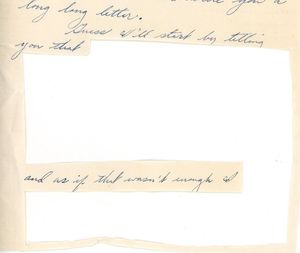 you a
long long letter.
Guess I'll start by telling
you that
and as if that wasn't enough I